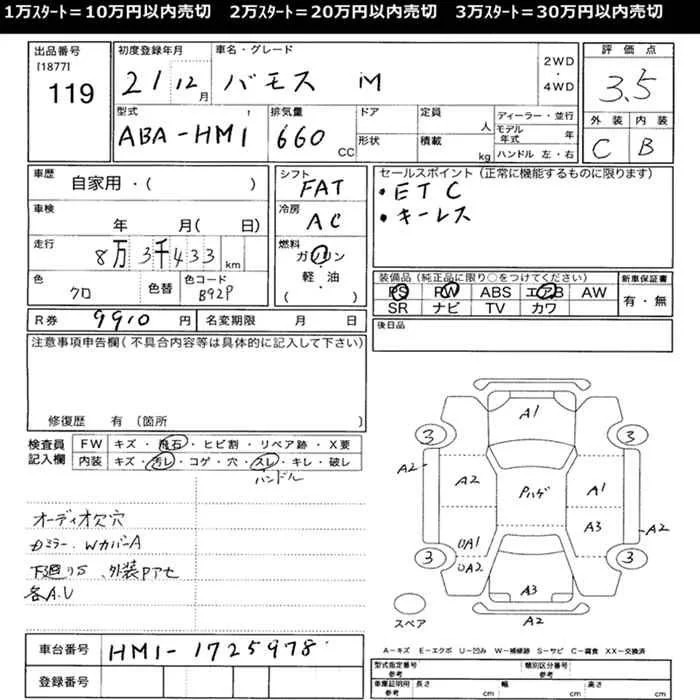 1万ｽﾀｰﾄ＝10万円以内売切　2万ｽﾀｰﾄ＝20万円以内売切　3万ｽﾀｰﾄ＝30万円以内売切
出品番号
[1877]
119
初度登録年月
21 12月
車名・グレード
バモス M
2WD
・
4WD
評価点
3.5
型式
ABA-HM1
排気量
660 CC
ドア
形状
定員
人
積載
kg
ディーラー・並行
モデル年式 年
ハンドル 左・右
外装 内装
C B
車歴
自家用・( )
車検
年 月( 日)
走行
8万3千433 km
色
クロ
色替
色コード
B92P
シフト
FAT
冷房
AC
燃料
ガソリン
・
軽・油
( )
セールスポイント(正常に機能するものに限ります)
・ETC
・キーレス
装備品(純正品に限り○をつけてください)
PS PW ABS エアB AW
SR ナビ TV カワ
新車保証書
有・無
後日品
R券 9910 円
名変期限 月 日
注意事項申告欄(不具合内容等は具体的に記入して下さい)
修復歴 有 [箇所 ]
検査員
記入欄
FW キズ・飛石・ヒビ割・リペア跡・X要
内装 キズ・汚レ・コゲ・穴・スレ・キレ・破レ
ハンドル
オーディオ欠穴
Dミラー、WカバーA
下廻りS、外装Pアセ
各A.U
A1
3 3
A2
A2 Pハゲ A1
A3
A2
UA1
UA2
3 3
A3
A2
スペア
車台番号 HM1-1725978
登録番号
A－キズ E－エクボ U－凹み W－補修跡 S－サビ C－腐食 XX－交換済
型式指定番号 類別区分番号
車庫証明用参考 長さ cm 幅 cm 高さ cm